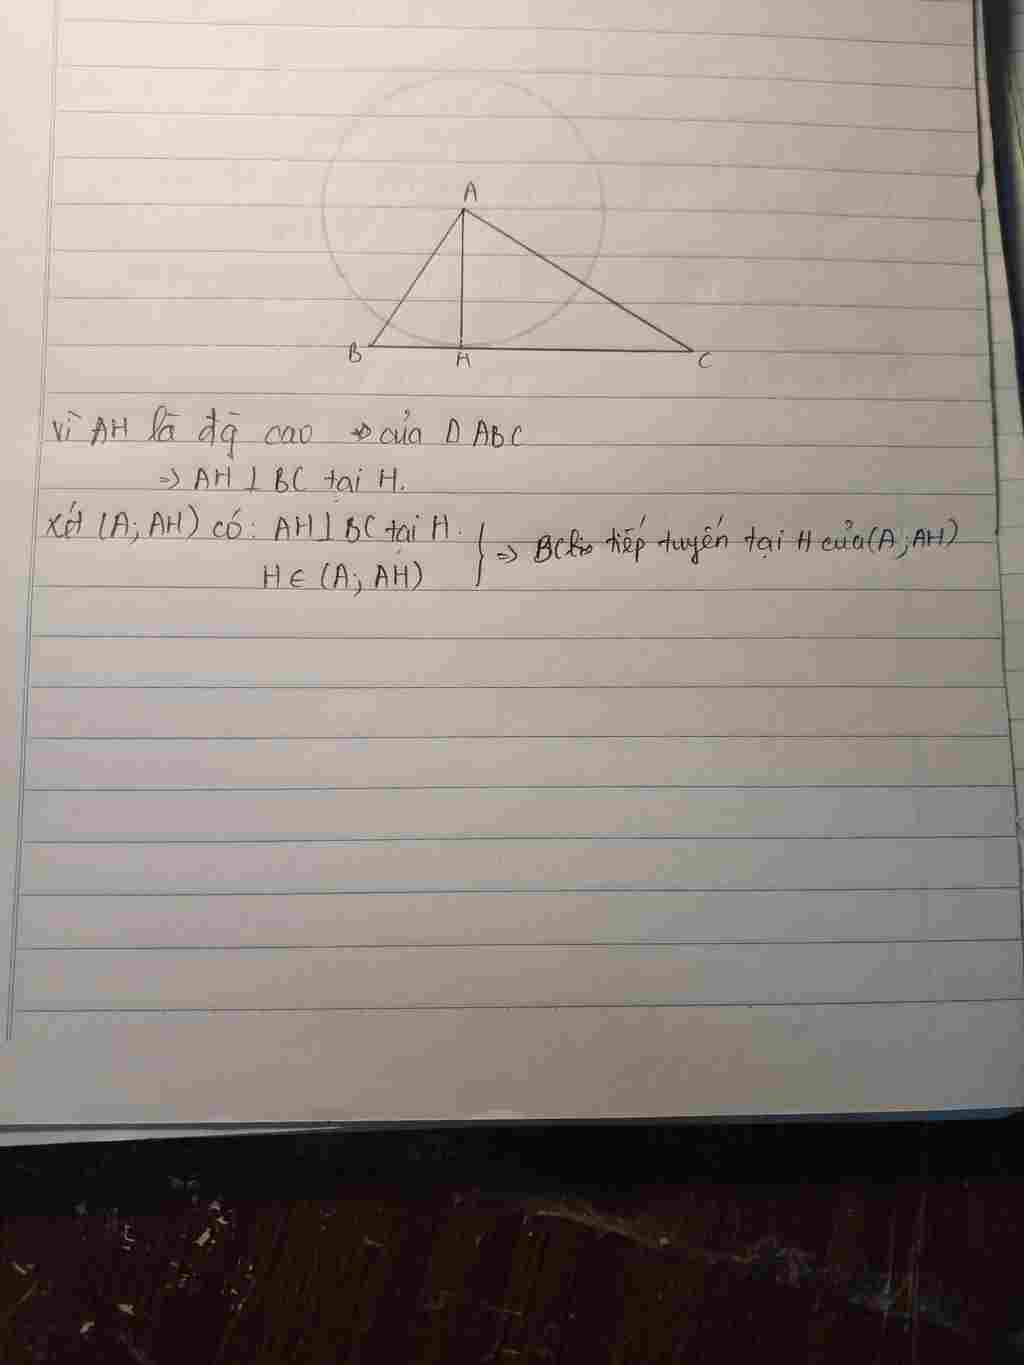 A
B
H
C
Vì AH là đg̀ cao của Δ ABC
=> AH ⊥ BC tại H.
Xét (A; AH) có: AH ⊥ BC tại H.
H ∈ (A; AH)
} => BC là tiếp tuyến tại H của (A; AH)